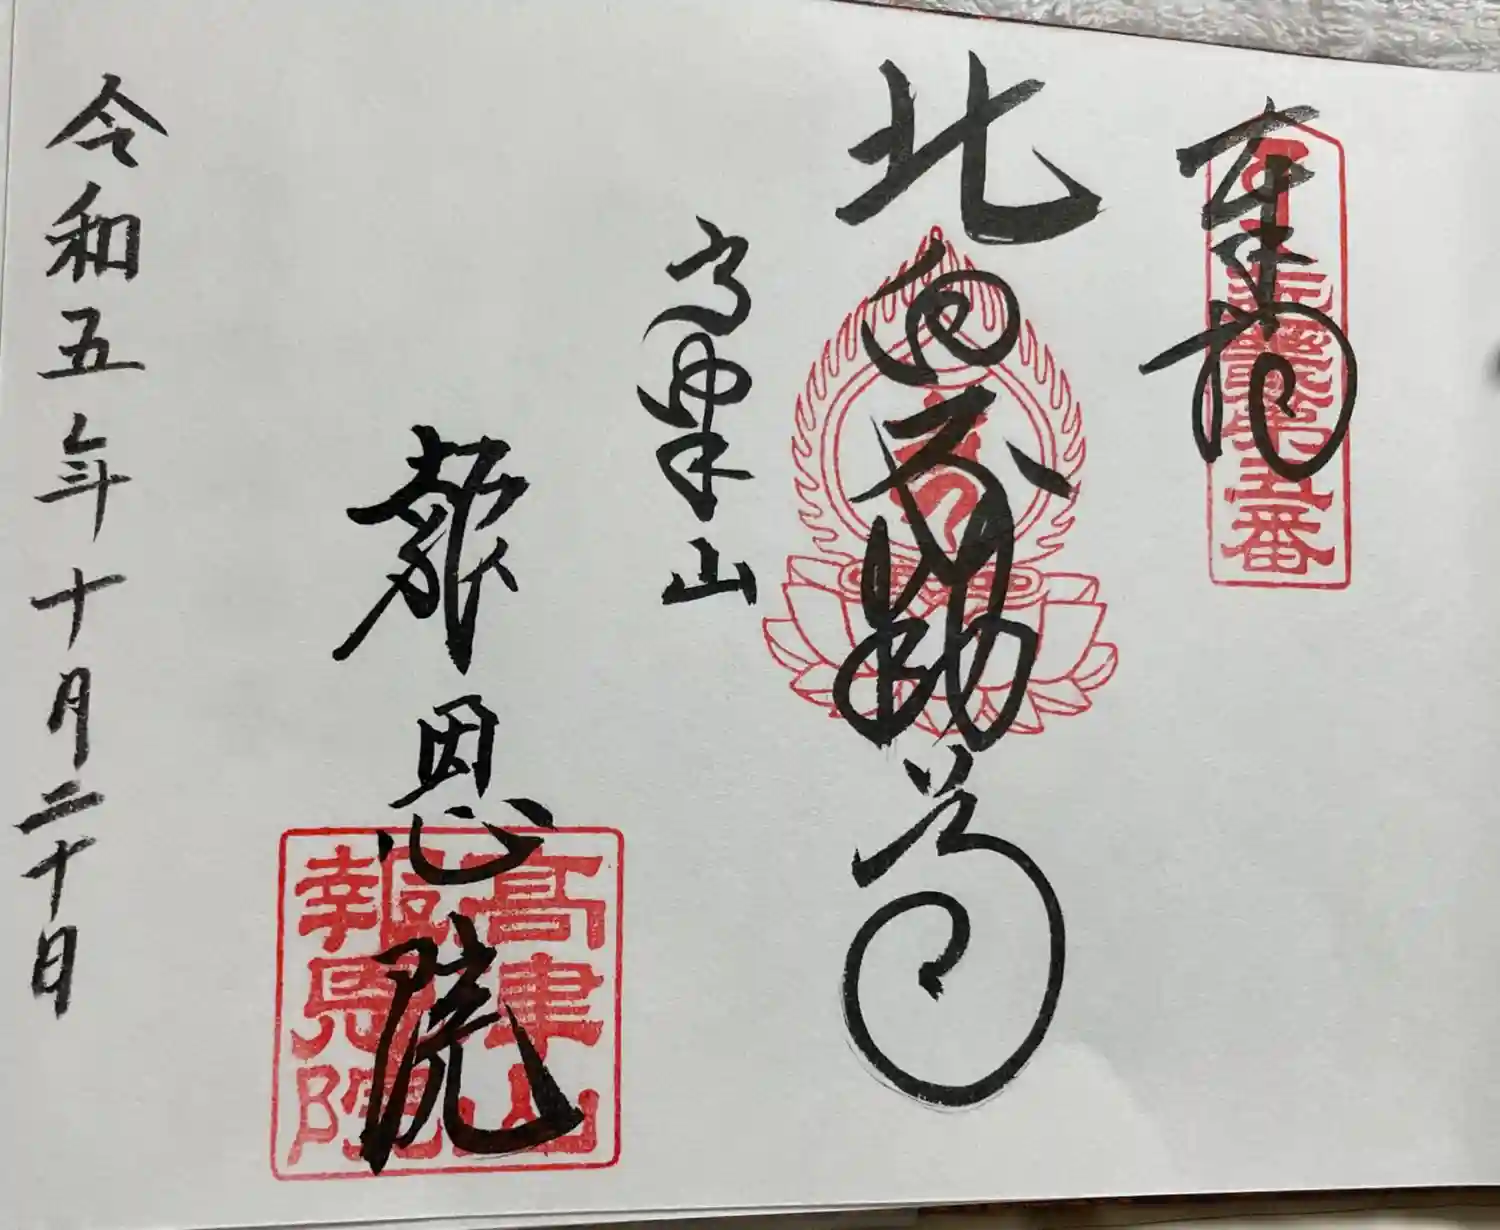 奉拝
第五番
北向不動尊
高津山
報恩院
高津山
報恩院
令和五年十月二十日